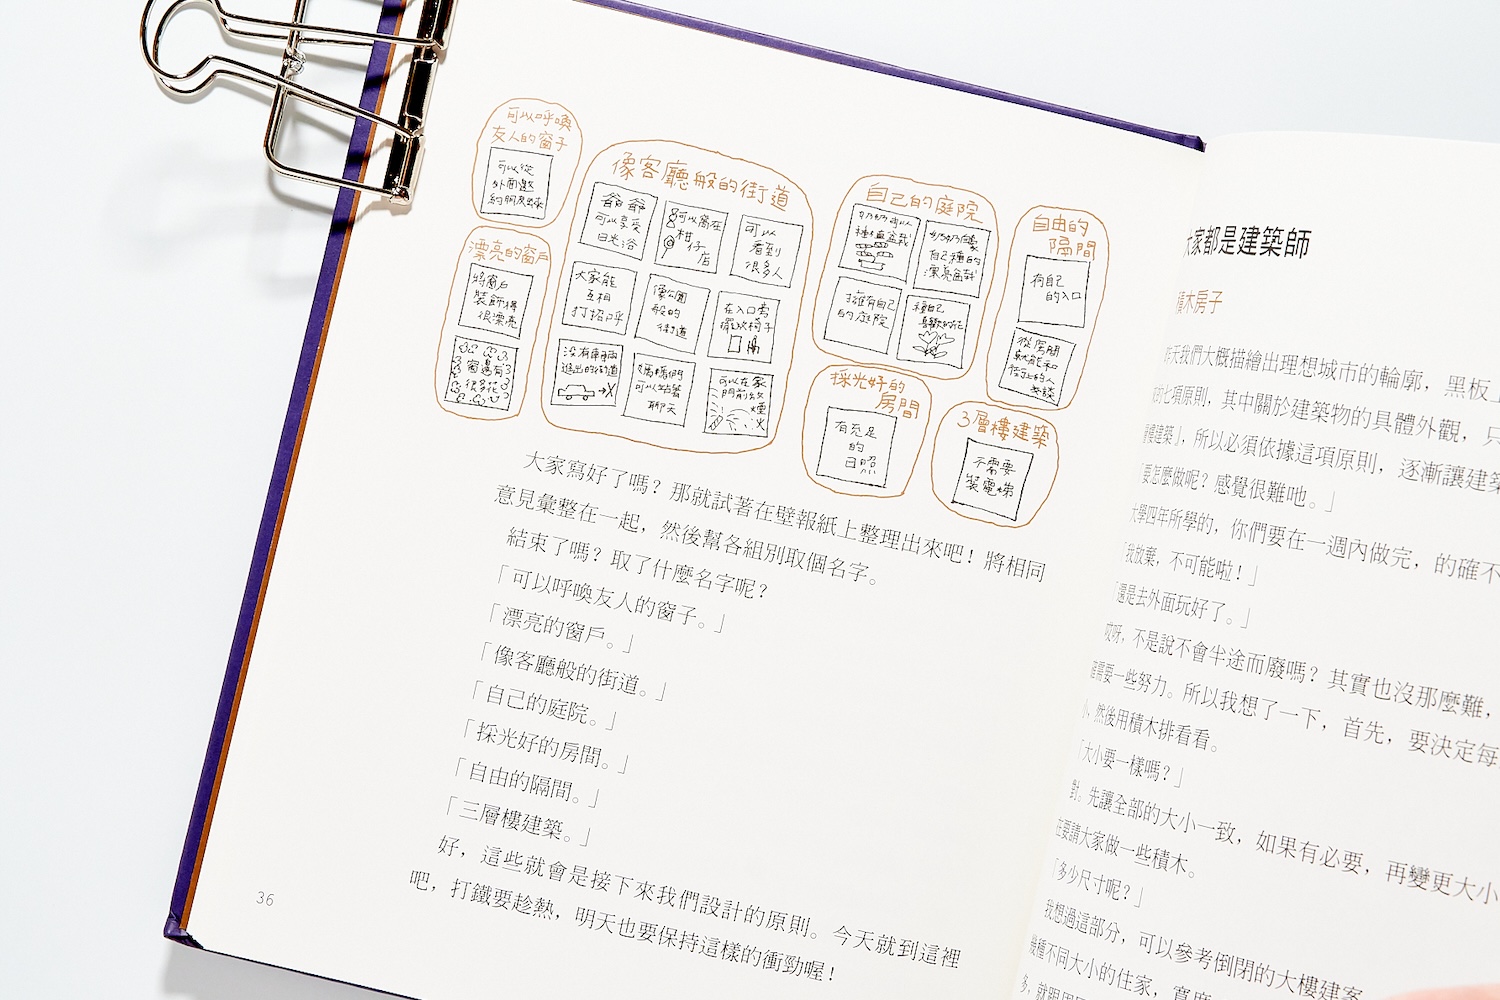 可以呼喚
友人的窗子
可以從
外面邀
約朋友出來
漂亮的窗戶
將窗戶
裝飾得
很漂亮
窗邊有
很多花
像客廳般的街道
爺爺
可以享受
日光浴
可以窩在
柑仔
店
可以
看到
很多人
大家能
互相
打招呼
像公園
般的
街道
在入口旁
擺放椅子
沒有車輛
進出的街道
媽媽們
可以站著
聊天
可以在家
門前放
煙
火
自己的庭院
奶奶可以
種植盆栽
自己種的
漂亮盆栽
擁有自己
的庭院
種自己
喜歡的花
自由的
隔間
有自己
的入口
從房間
就能和
街上的人
交談
採光好的
房間
有充足
的
日照
3層樓建築
不需要
裝電梯
大家寫好了嗎？那就試著在壁報紙上整理出來吧！將相同
意見彙整在一起，然後幫各組別取個名字。
結束了嗎？取了什麼名字呢？
「可以呼喚友人的窗子。」
「漂亮的窗戶。」
「像客廳般的街道。」
「自己的庭院。」
「採光好的房間。」
「自由的隔間。」
「三層樓建築。」
好，這些就會是接下來我們設計的原則。今天就到這裡
吧，打鐵要趁熱，明天也要保持這樣的衝勁喔！
36
大家都是建築師
積木房子
昨天我們大概描繪出理想城市的輪廓，黑板上
的七項原則，其中關於建築物的具體外觀，只
層樓建築」，所以必須依據這項原則，逐漸讓建築
「要怎麼做呢？感覺很難吔。」
大學四年所學的，你們要在一週內做完，的確不
「我放棄，不可能啦！」
「還是去外面玩好了。」
哎呀，不是說不會半途而廢嗎？其實也沒那麼難，
需要一些努力。所以我想了一下，首先，要決定每
小，然後用積木排看看。
「大小要一樣嗎？」
對。先讓全部的大小一致，如果有必要，再變更大小
在要請大家做一些積木。
「多少尺寸呢？」
我想過這部分，可以參考倒閉的大樓建案
幾種不同大小的住家，寬度